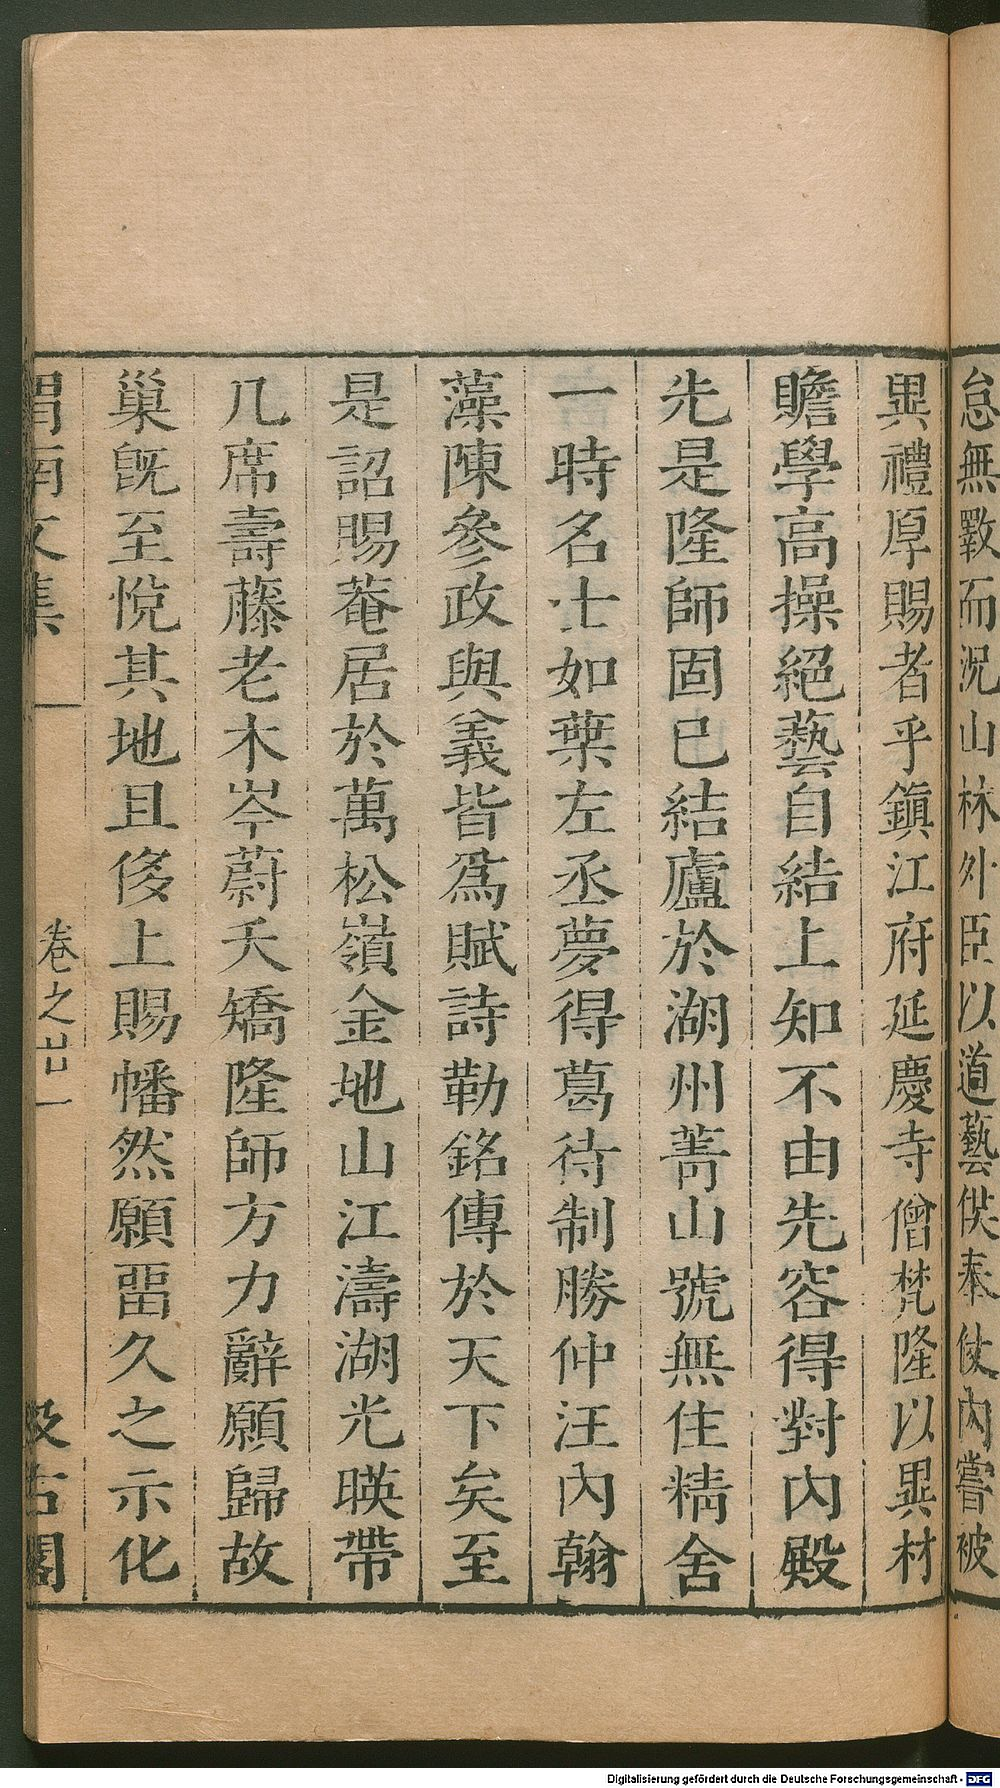 怠無斁而況山林外臣以道藝供奉仗內嘗被
異禮厚賜者乎鎮江府延慶寺僧梵隆以異材
贍學高操絕藝自結上知不由先容得對內殿
先是隆師固已結廬於湖州菁山號無住精舍
一時名士如葉左丞夢得葛待制勝仲汪內翰
藻陳參政與義皆爲賦詩勒銘傳於天下矣至
是詔賜菴居於萬松嶺金地山江濤湖光暎帶
几席壽藤老木岑蔚夭矯隆師方力辭願歸故
巢旣至悅其地且侈上賜幡然願畱久之示化
渭南文集 卷之廿一 汲古閣
Digitalisierung gefördert durch die Deutsche Forschungsgemeinschaft - DFG